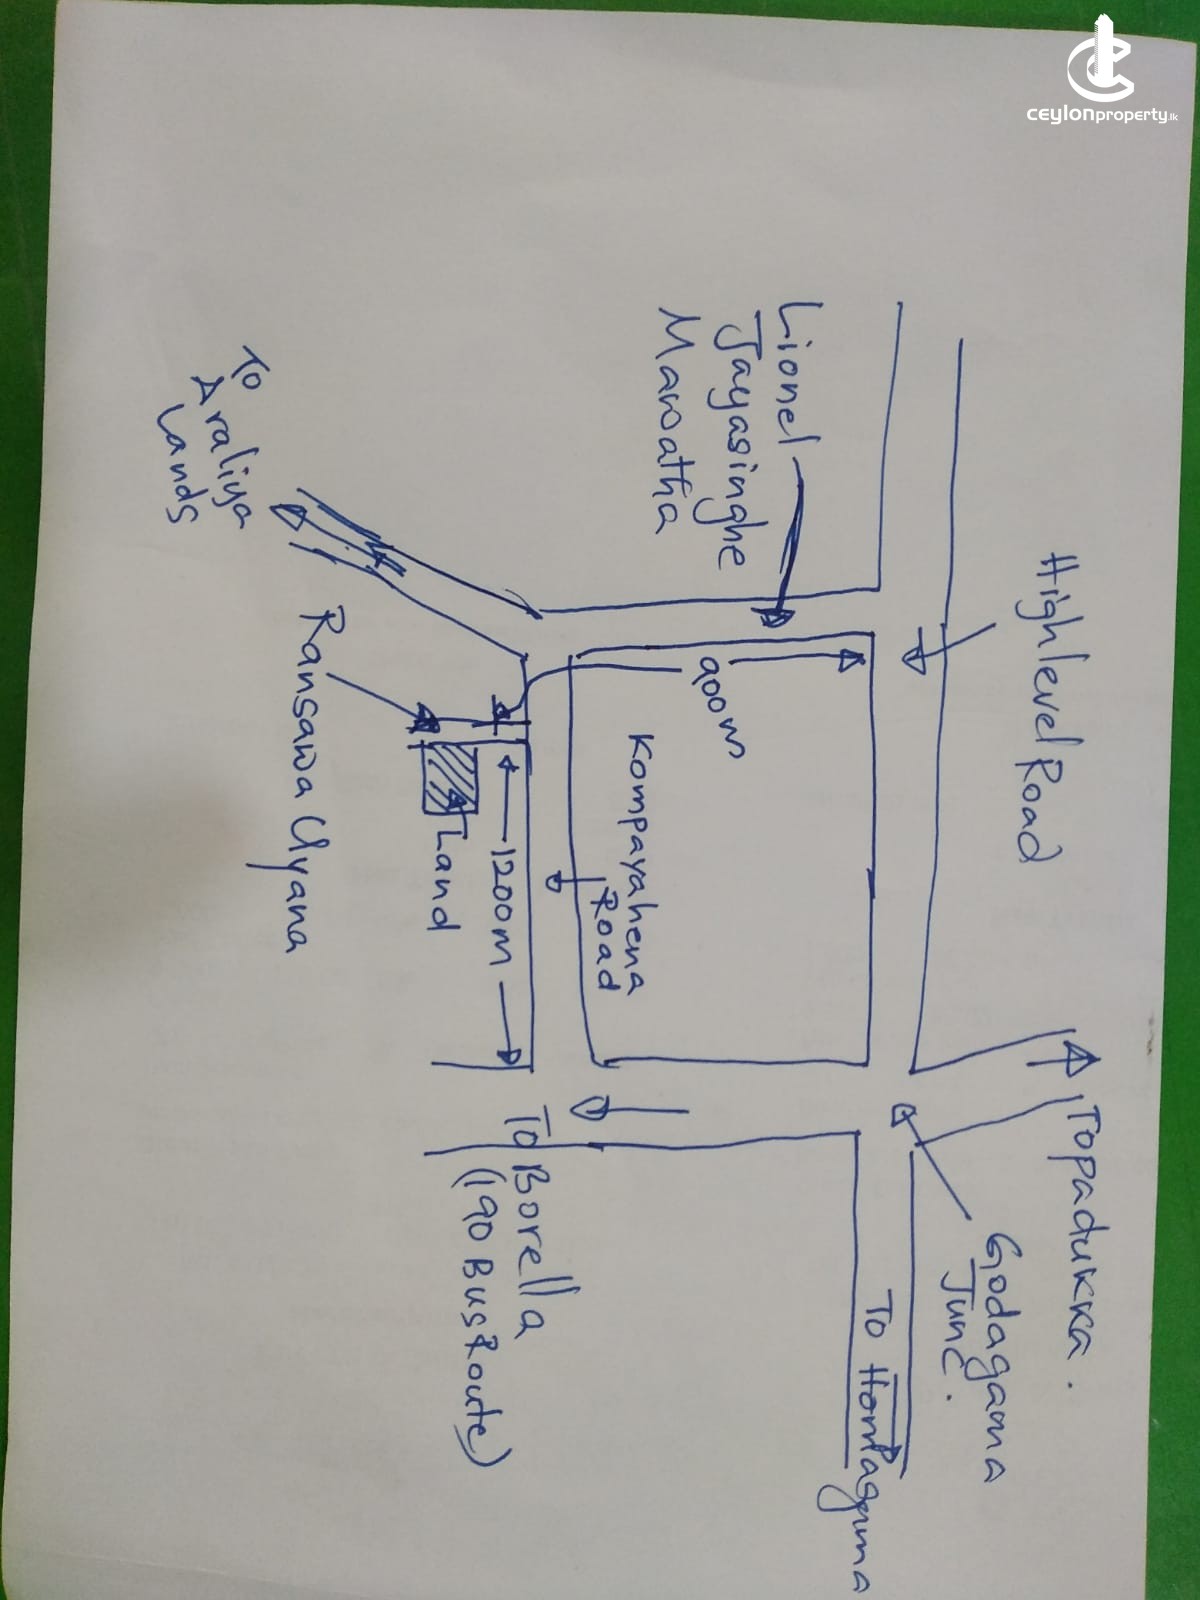 ceylonproperty.lk
To Padukka.
High level Road
Godagama
Junc.
To Homagama
Lionel
Jayasinghe
Mawatha
900m
Kompayahena
Road
To Borella
(190 Bus Route)
1200m
Land
Ransawa Uyana
To
Araliya
Lands